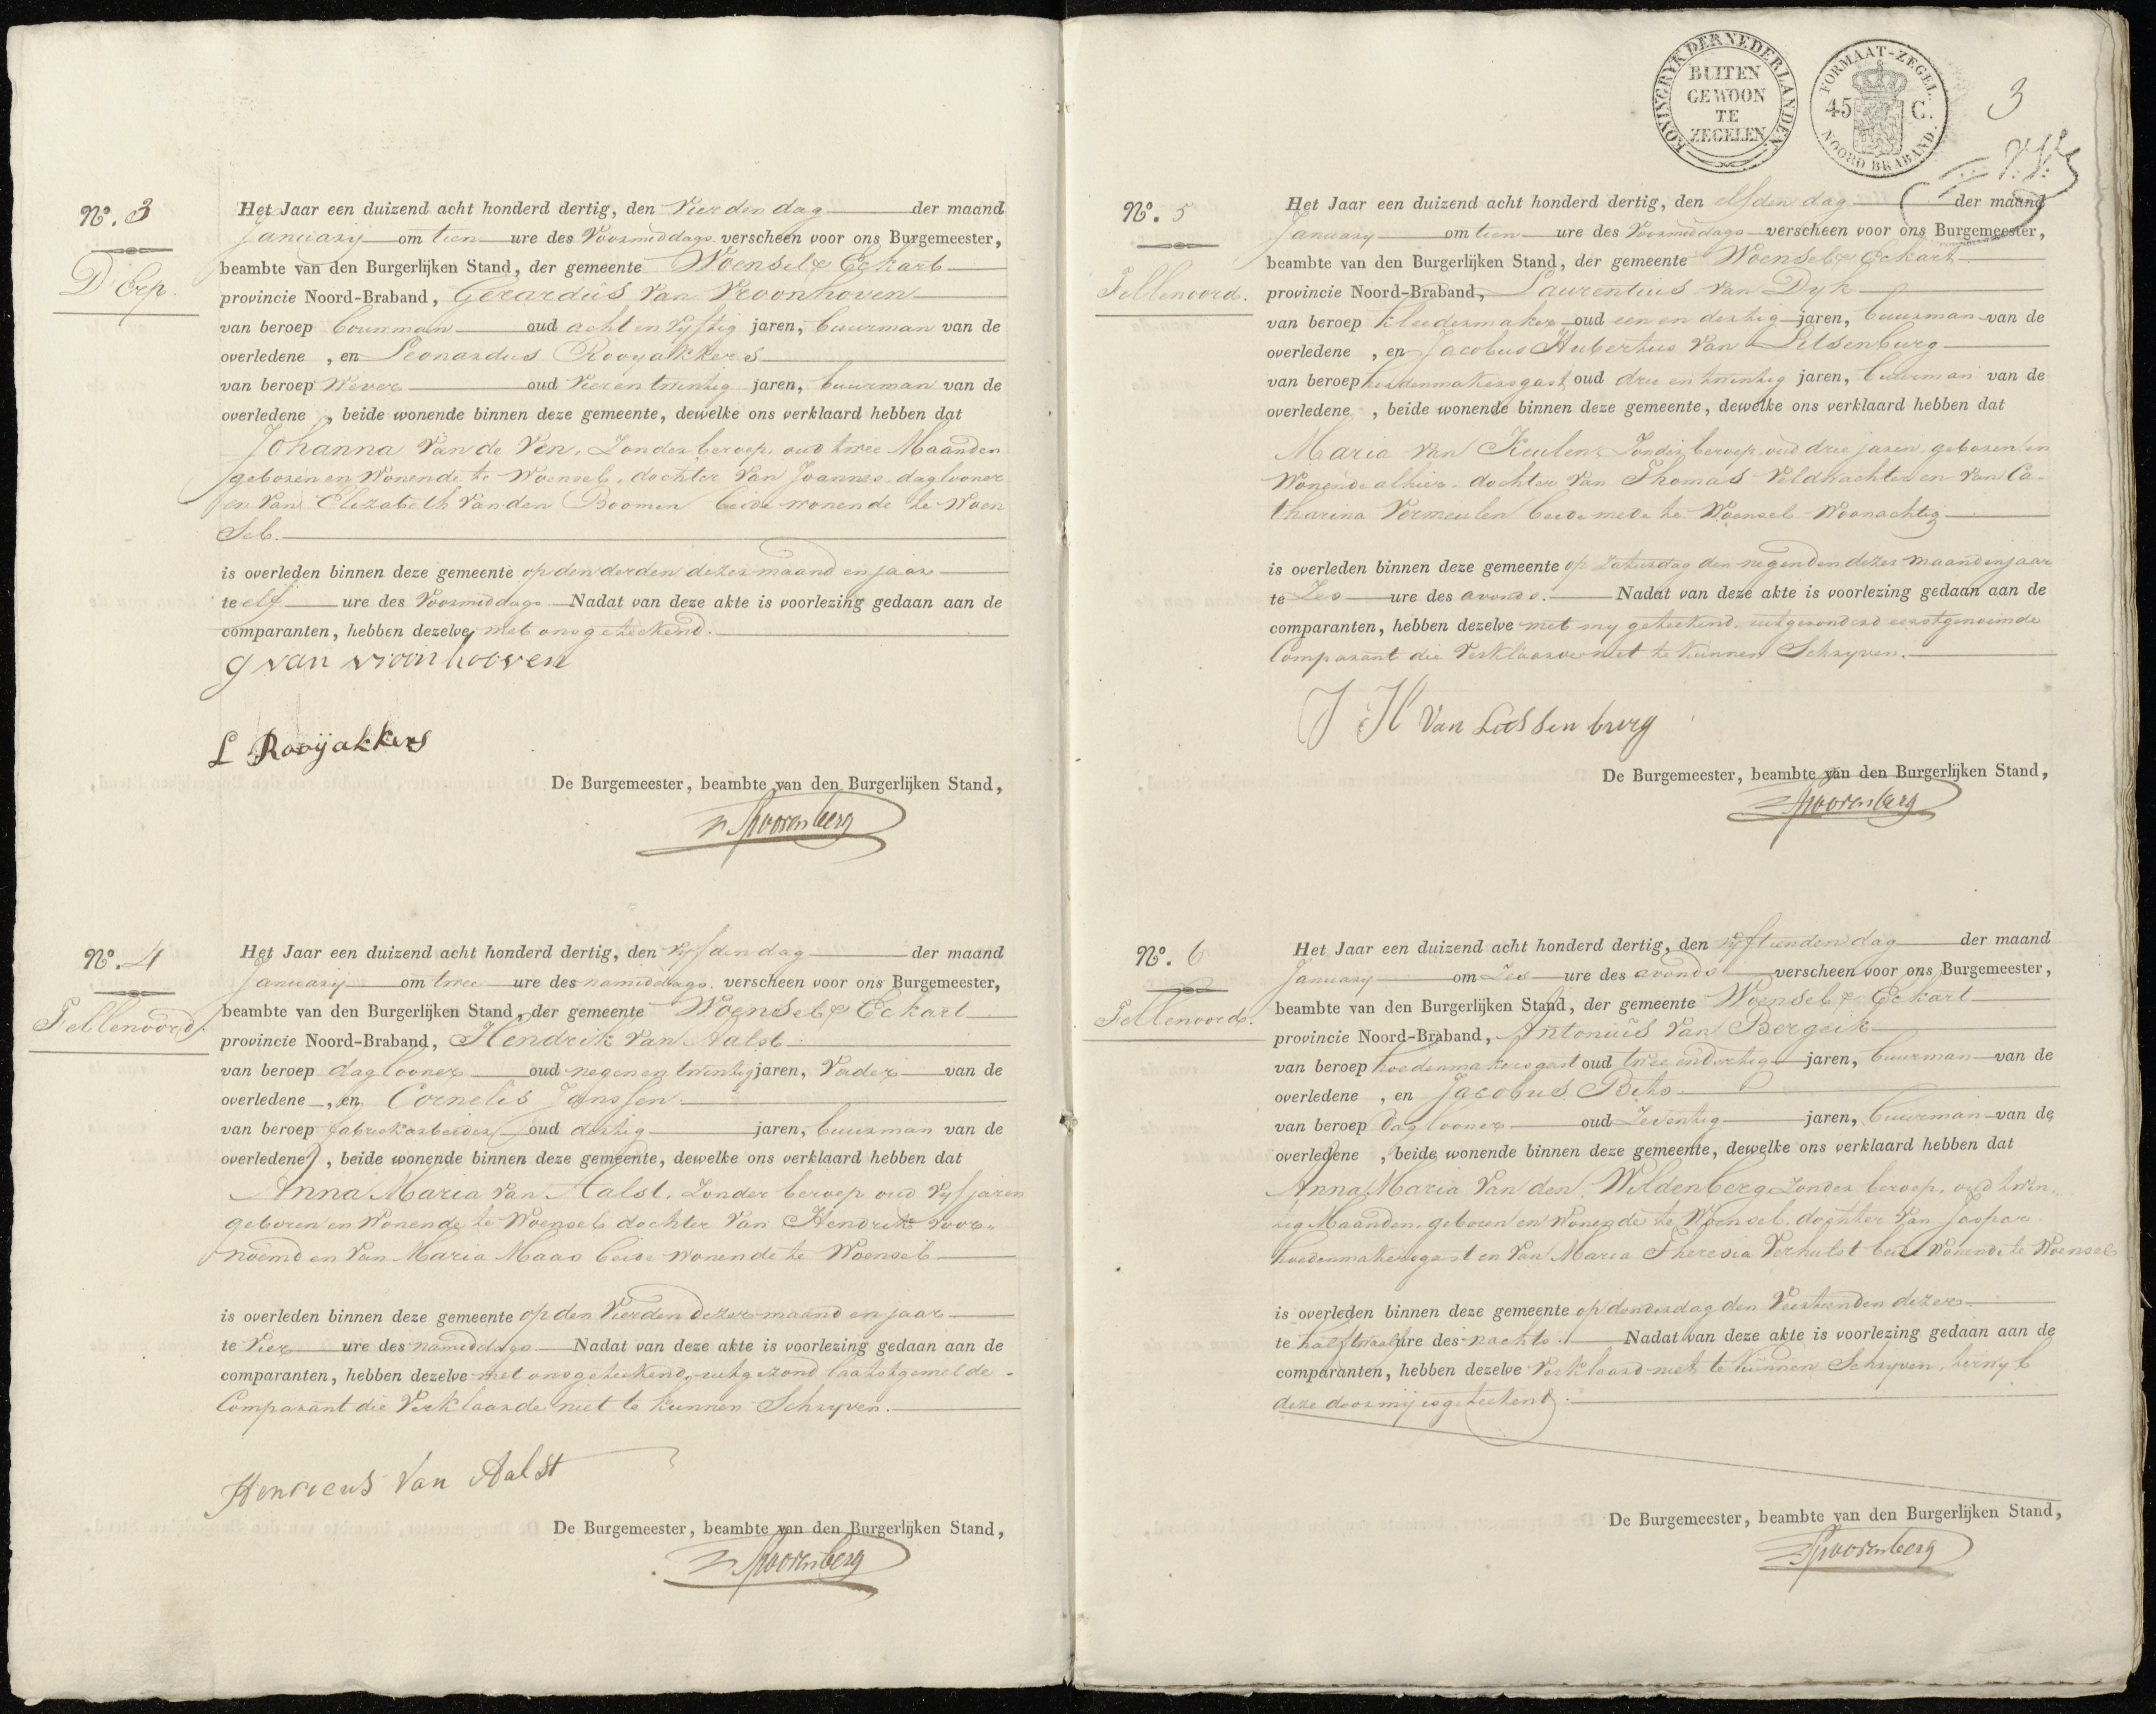 N°. 3
D'Orp.
Het Jaar een duizend acht honderd dertig, den Vierden dag der maand
January om tien ure des Voormiddags verscheen voor ons Burgemeester,
beambte van den Burgerlijken Stand, der gemeente Woensel & Eckart
provincie Noord-Braband, Gerardus Van Vroonhoven
van beroep bouwman oud acht en Vyftig jaren, buurman van de
overledene , en Leonardus Rooyakkers
van beroep Wever oud Vier en twintig jaren, buurman van de
overledene , beide wonende binnen deze gemeente, dewelke ons verklaard hebben dat
Johanna Van de Ven, Zonder beroep, oud twee Maanden
geboren en Wonende te Woensel, dochter Van Joannes dagloner
en Van Elizabeth Van den Boomen beide wonende te Woen
Sel.
is overleden binnen deze gemeente op den derden dezer maand en jaar
te elf ure des Voormiddags Nadat van deze akte is voorlezing gedaan aan de
comparanten, hebben dezelve met ons geteekend.
g van vroonhooven
L Rooyakkers
De Burgemeester, beambte van den Burgerlijken Stand,
Spoorenberg
N°. 4
Fellenoord.
Het Jaar een duizend acht honderd dertig, den Vyfden dag der maand
January om twee ure des namiddags verscheen voor ons Burgemeester,
beambte van den Burgerlijken Stand, der gemeente Woensel & Eckart
provincie Noord-Braband, Hendrik Van Aalst
van beroep daglooner oud negen en twintig jaren, Vader van de
overledene , en Cornelis Janssen
van beroep fabriekarbeider oud dertig jaren, buurman van de
overledene , beide wonende binnen deze gemeente, dewelke ons verklaard hebben dat
Anna Maria Van Aalst, Zonder beroep oud Vyf jaren
geboren en Wonende te Woensel dochter Van Hendrik Voor-
noemd en Van Maria Maas beide wonende te Woensel
is overleden binnen deze gemeente op den Vierden dezer maand en jaar
te Vier ure des namiddags Nadat van deze akte is voorlezing gedaan aan de
comparanten, hebben dezelve met ons geteekend, uitgezond laatstgemelde
Comparant die Verklaarde niet te kunnen Schryven.
Henricus Van Aalst
De Burgemeester, beambte van den Burgerlijken Stand,
Spoorenberg
KONINGRYK DER NEDERLANDEN
BUITEN
GEWOON
TE
ZEGELEN
FORMAAT-ZEGEL.
45 C.
NOORD BRABAND.
3
N°. 5
Fellenoord.
Het Jaar een duizend acht honderd dertig, den elfden dag der maand
January om tien ure des Voormiddags verscheen voor ons Burgemeester,
beambte van den Burgerlijken Stand, der gemeente Woensel & Eckart
provincie Noord-Braband, Laurentius Van Dyk
van beroep kleedermaker oud een en dertig jaren, buurman van de
overledene , en Jacobus Hubertus Van Litsenburg
van beroep hoedenmakersgast oud drie en twintig jaren, buurman van de
overledene , beide wonende binnen deze gemeente, dewelke ons verklaard hebben dat
Maria Van Keulen, Zonder beroep, oud drie jaren, geboren en
Wonende alhier, dochter Van Thomas Veldwachter en Van Ca-
tharina Vermeulen beide mede te Woensel Woonachtig
is overleden binnen deze gemeente op Zaturdag den negenden dezer maand en jaar
te Zes ure des avonds. Nadat van deze akte is voorlezing gedaan aan de
comparanten, hebben dezelve met my geteekend, uitgezonderd eerstgenoemde
Comparant die Verklaarde niet te kunnen Schryven.
J H Van Litssenburg
De Burgemeester, beambte van den Burgerlijken Stand,
Spoorenberg
N°. 6
Fellenoord.
Het Jaar een duizend acht honderd dertig, den vyftienden dag der maand
January om Zes ure des avonds verscheen voor ons Burgemeester,
beambte van den Burgerlijken Stand, der gemeente Woensel & Eckart
provincie Noord-Braband, Antonius Van Bergeik
van beroep hoedenmakersgast oud twee en dertig jaren, buurman van de
overledene , en Jacobus Bits
van beroep Daglooner oud Zeventig jaren, buurman van de
overledene , beide wonende binnen deze gemeente, dewelke ons verklaard hebben dat
Anna Maria Van den Wildenberg Zonder beroep, oud twin-
tig Maanden, geboren en Wonende te Woensel, dochter Van Jaspar
hoedenmakersgast en Van Maria Theresia Verhulst beide Wonende te Woensel
is overleden binnen deze gemeente op donderdag den Veertienden dezer
te half twaalf ure des nachts. Nadat van deze akte is voorlezing gedaan aan de
comparanten, hebben dezelve Verklaard niet te kunnen Schryven, terwyl
deze door mij is geteekend.
De Burgemeester, beambte van den Burgerlijken Stand,
Spoorenberg